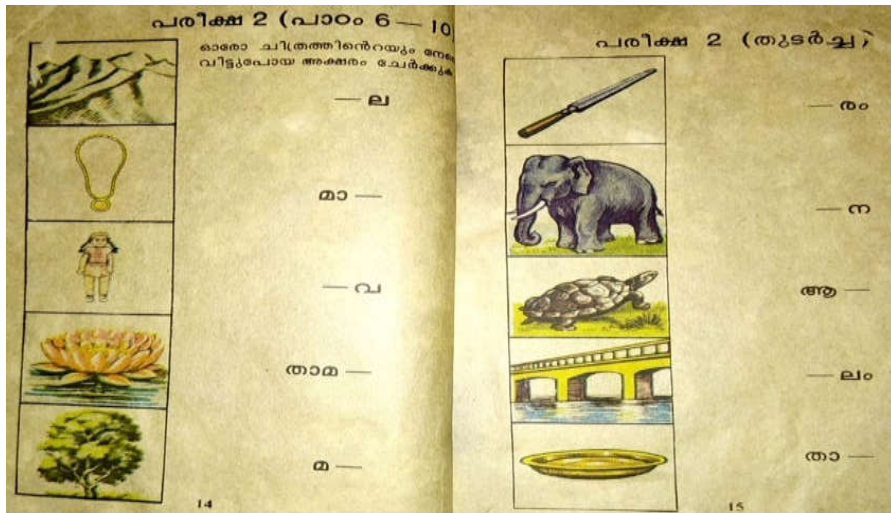 പരീക്ഷ 2 (പാഠം 6 — 10
ഓരോ ചിത്രത്തിൻെറയും നേരെ
വിട്ടുപോയ അക്ഷരം ചേർക്കുക
— ല
മാ —
— വ
താമ —
മ —
14
പരീക്ഷ 2 (തുടർച്ച)
— രം
— ന
ആ —
— ലം
താ —
15